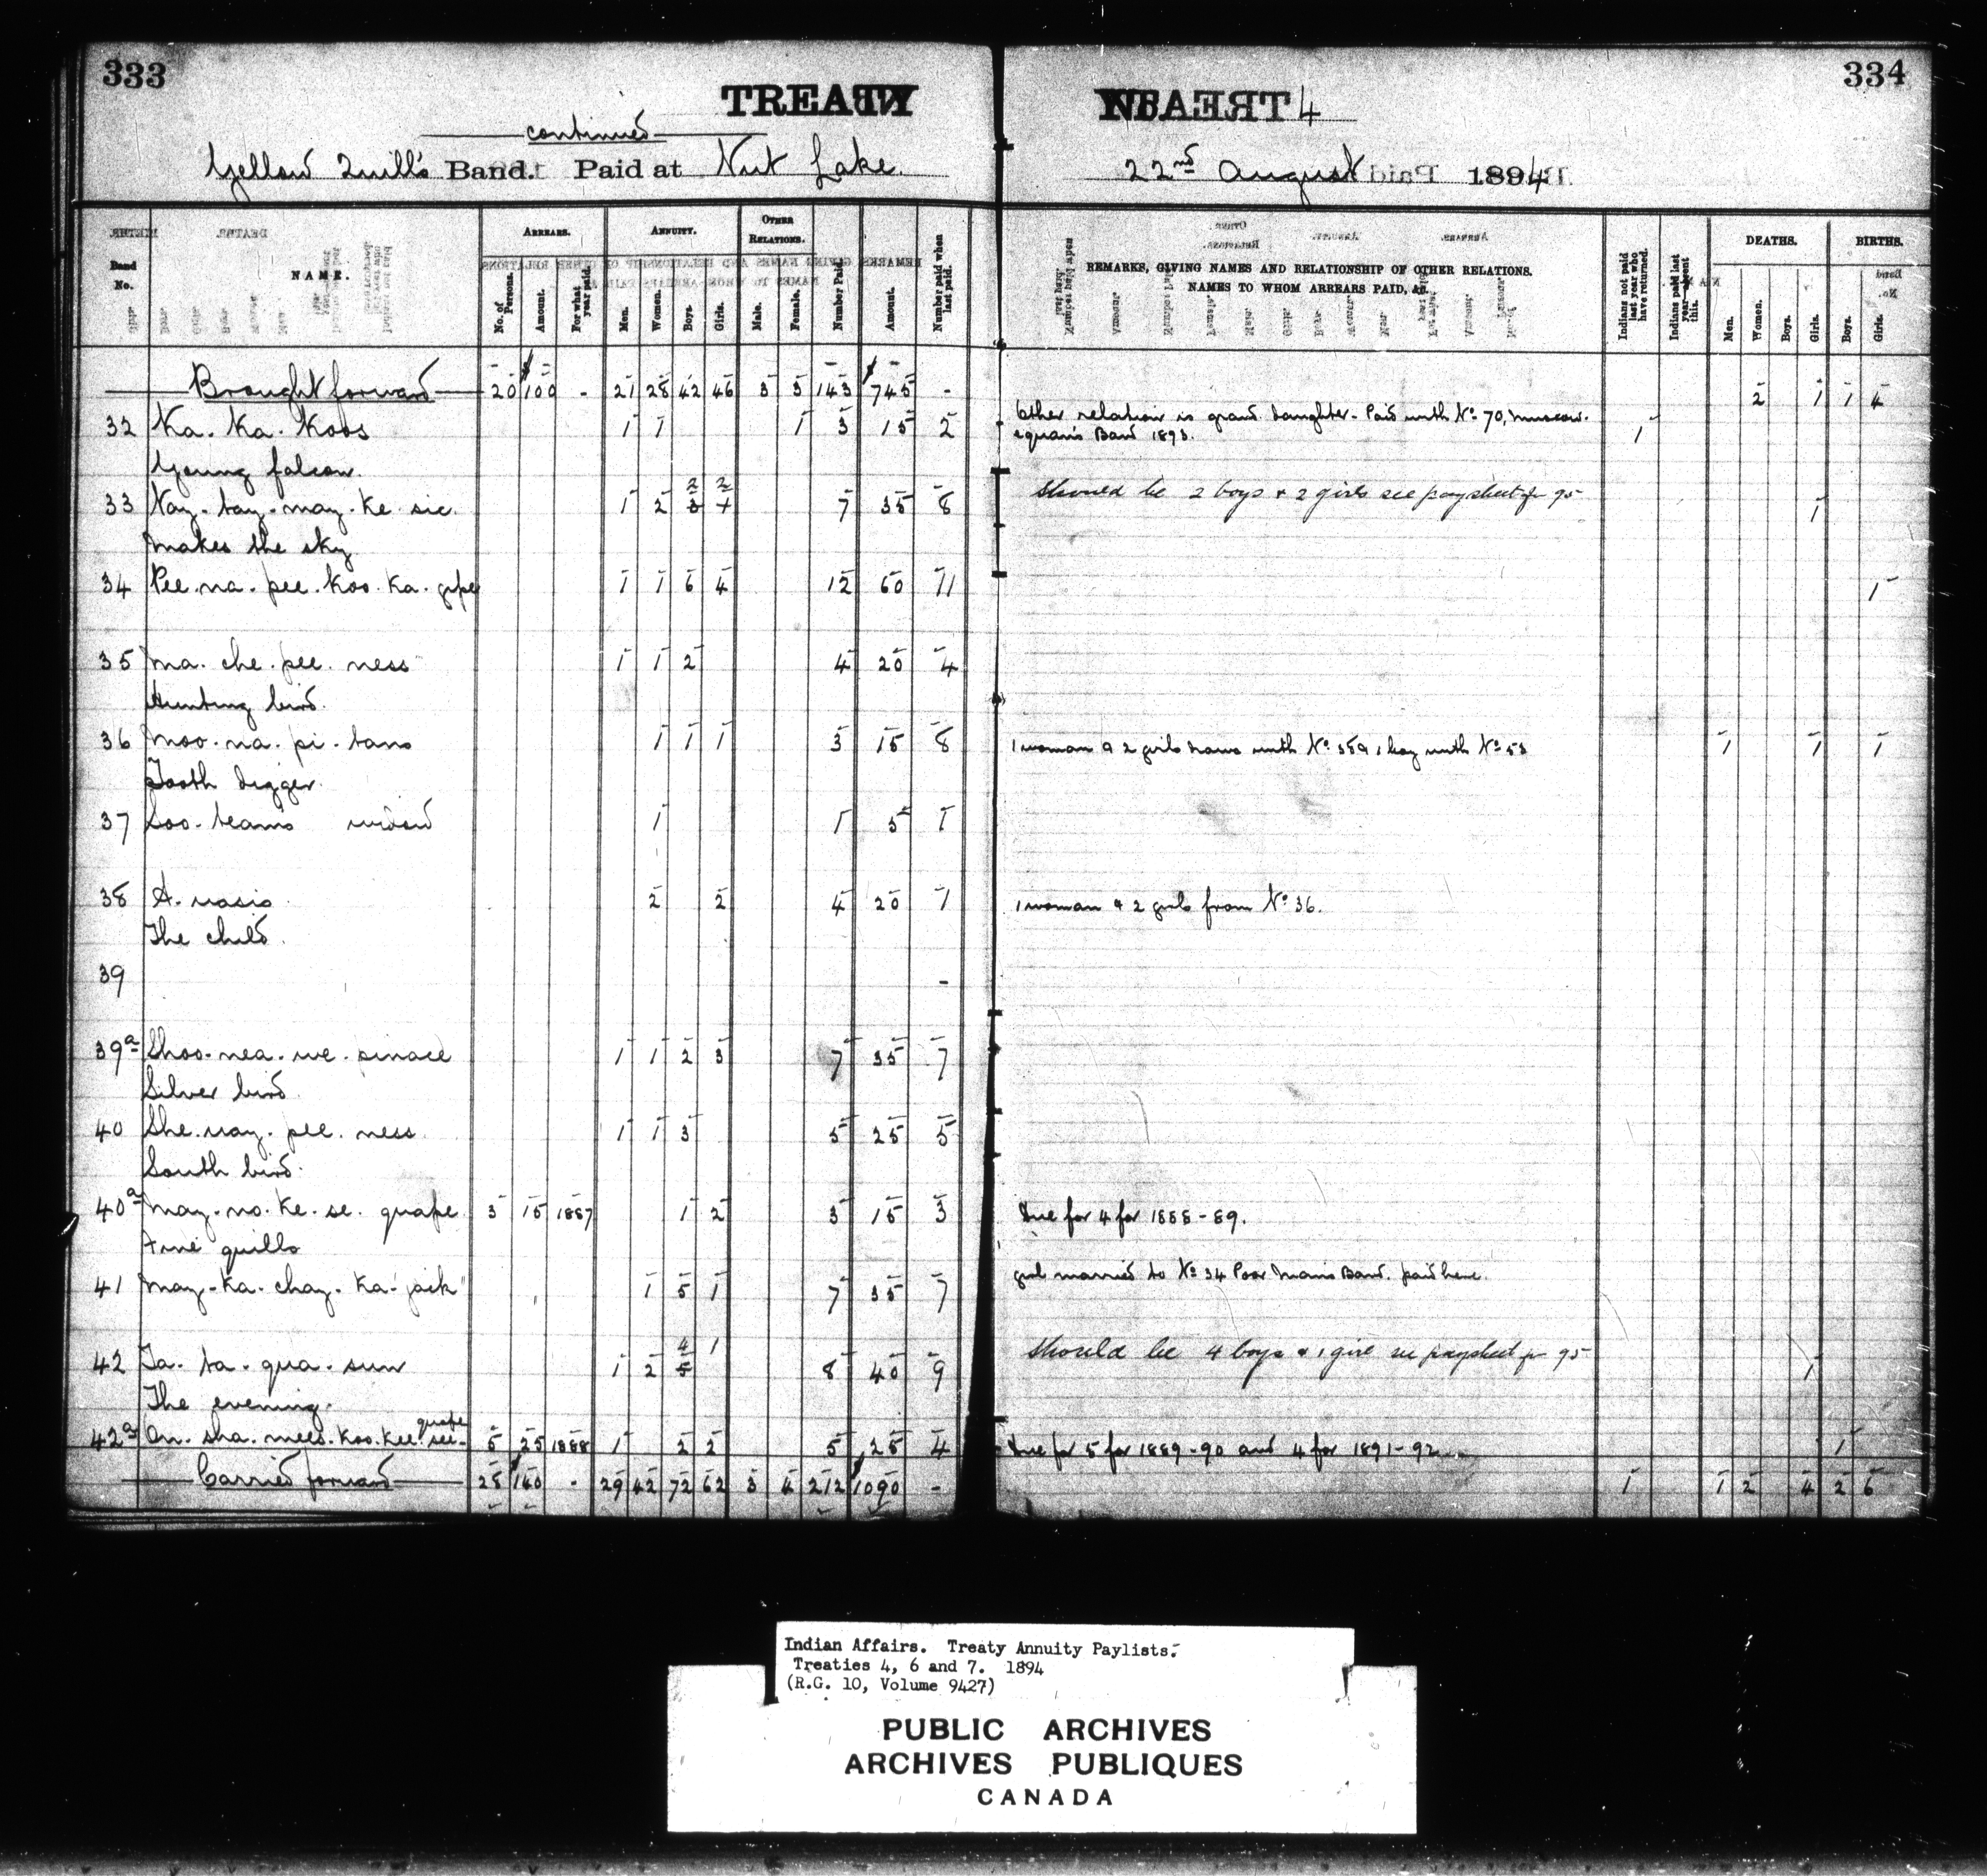 333
334
TREATY
TREATY 4
continued
Yellow Quill's Band. Paid at Nut Lake.
22nd August 1894
Band No.
NAME.
ARREARS.
No. of Persons.
Amount.
For what year paid.
ANNUITY.
Men.
Women.
Boys.
Girls.
OTHER RELATIONS.
Male.
Female.
Number Paid.
Amount.
Number paid when last paid.
REMARKS, GIVING NAMES AND RELATIONSHIP OF OTHER RELATIONS.
NAMES TO WHOM ARREARS PAID, &c.
Indians not paid last year who have returned.
Indians paid last year absent this.
DEATHS.
Men.
Women.
Boys.
Girls.
BIRTHS.
Boys.
Girls.
Brought forward 20 $100 - 21 28 42 46 3 3 143 $745 - 2 1 1 4
32 Ka. Ka. Koos 1 1 1 3 15 2 Other relation is grand daughter. Paid with No. 70, Muscow-
equan's Band 1893. 1
Young falcon.
33 Nay. tay. may. ke. sic. 1 2 3 2 2 7 35 8 Should be 2 boys & 2 girls see paysheet for 95 1
Makes the sky
34 Pee. na. pee. koo. ka. 1 1 6 4 12 60 11 1
35 Ma. che. pee. ness 1 1 2 4 20 4
Hunting bird.
36 Moo. na. pi. tans 1 1 1 3 15 8 1 woman & 2 girls now with No. 1 boy with No. 53 1 1 1
Tooth digger.
37 widow 1 1 5 1
38 A. 2 2 4 20 1 1 woman & 2 girls from No. 36.
The child.
39 -
39a Shoo. nea. we. pinace 1 1 2 3 7 35 7
Silver bird.
40 She. way. pee. ness. 1 1 3 5 25 5
South bird.
40a May. no. ke. se. quape 3 15 1887 1 2 3 15 3 Due for 4 for 1888-89.
Fine quills
41 May. ka. chay. ka. jack 1 5 1 7 35 7 girl married to No. 34 Poor Man's Band. paid here.
42 Ta. ta. qua. sun 1 2 5 4 1 8 40 9 Should be 4 boys & 1 girl see paysheet for 95 1
The evening.
42a On. sha. mees. koo. kee. see. quape 5 25 1888 1 2 2 5 25 4 Due for 5 for 1889-90 and 4 for 1891-92. 1
Carried forward 28 140 - 29 42 72 62 3 4 212 $1090 - 1 1 2 4 2 6
Indian Affairs. Treaty Annuity Paylists.
Treaties 4, 6 and 7. 1894
(R.G. 10, Volume 9427)
PUBLIC ARCHIVES
ARCHIVES PUBLIQUES
CANADA